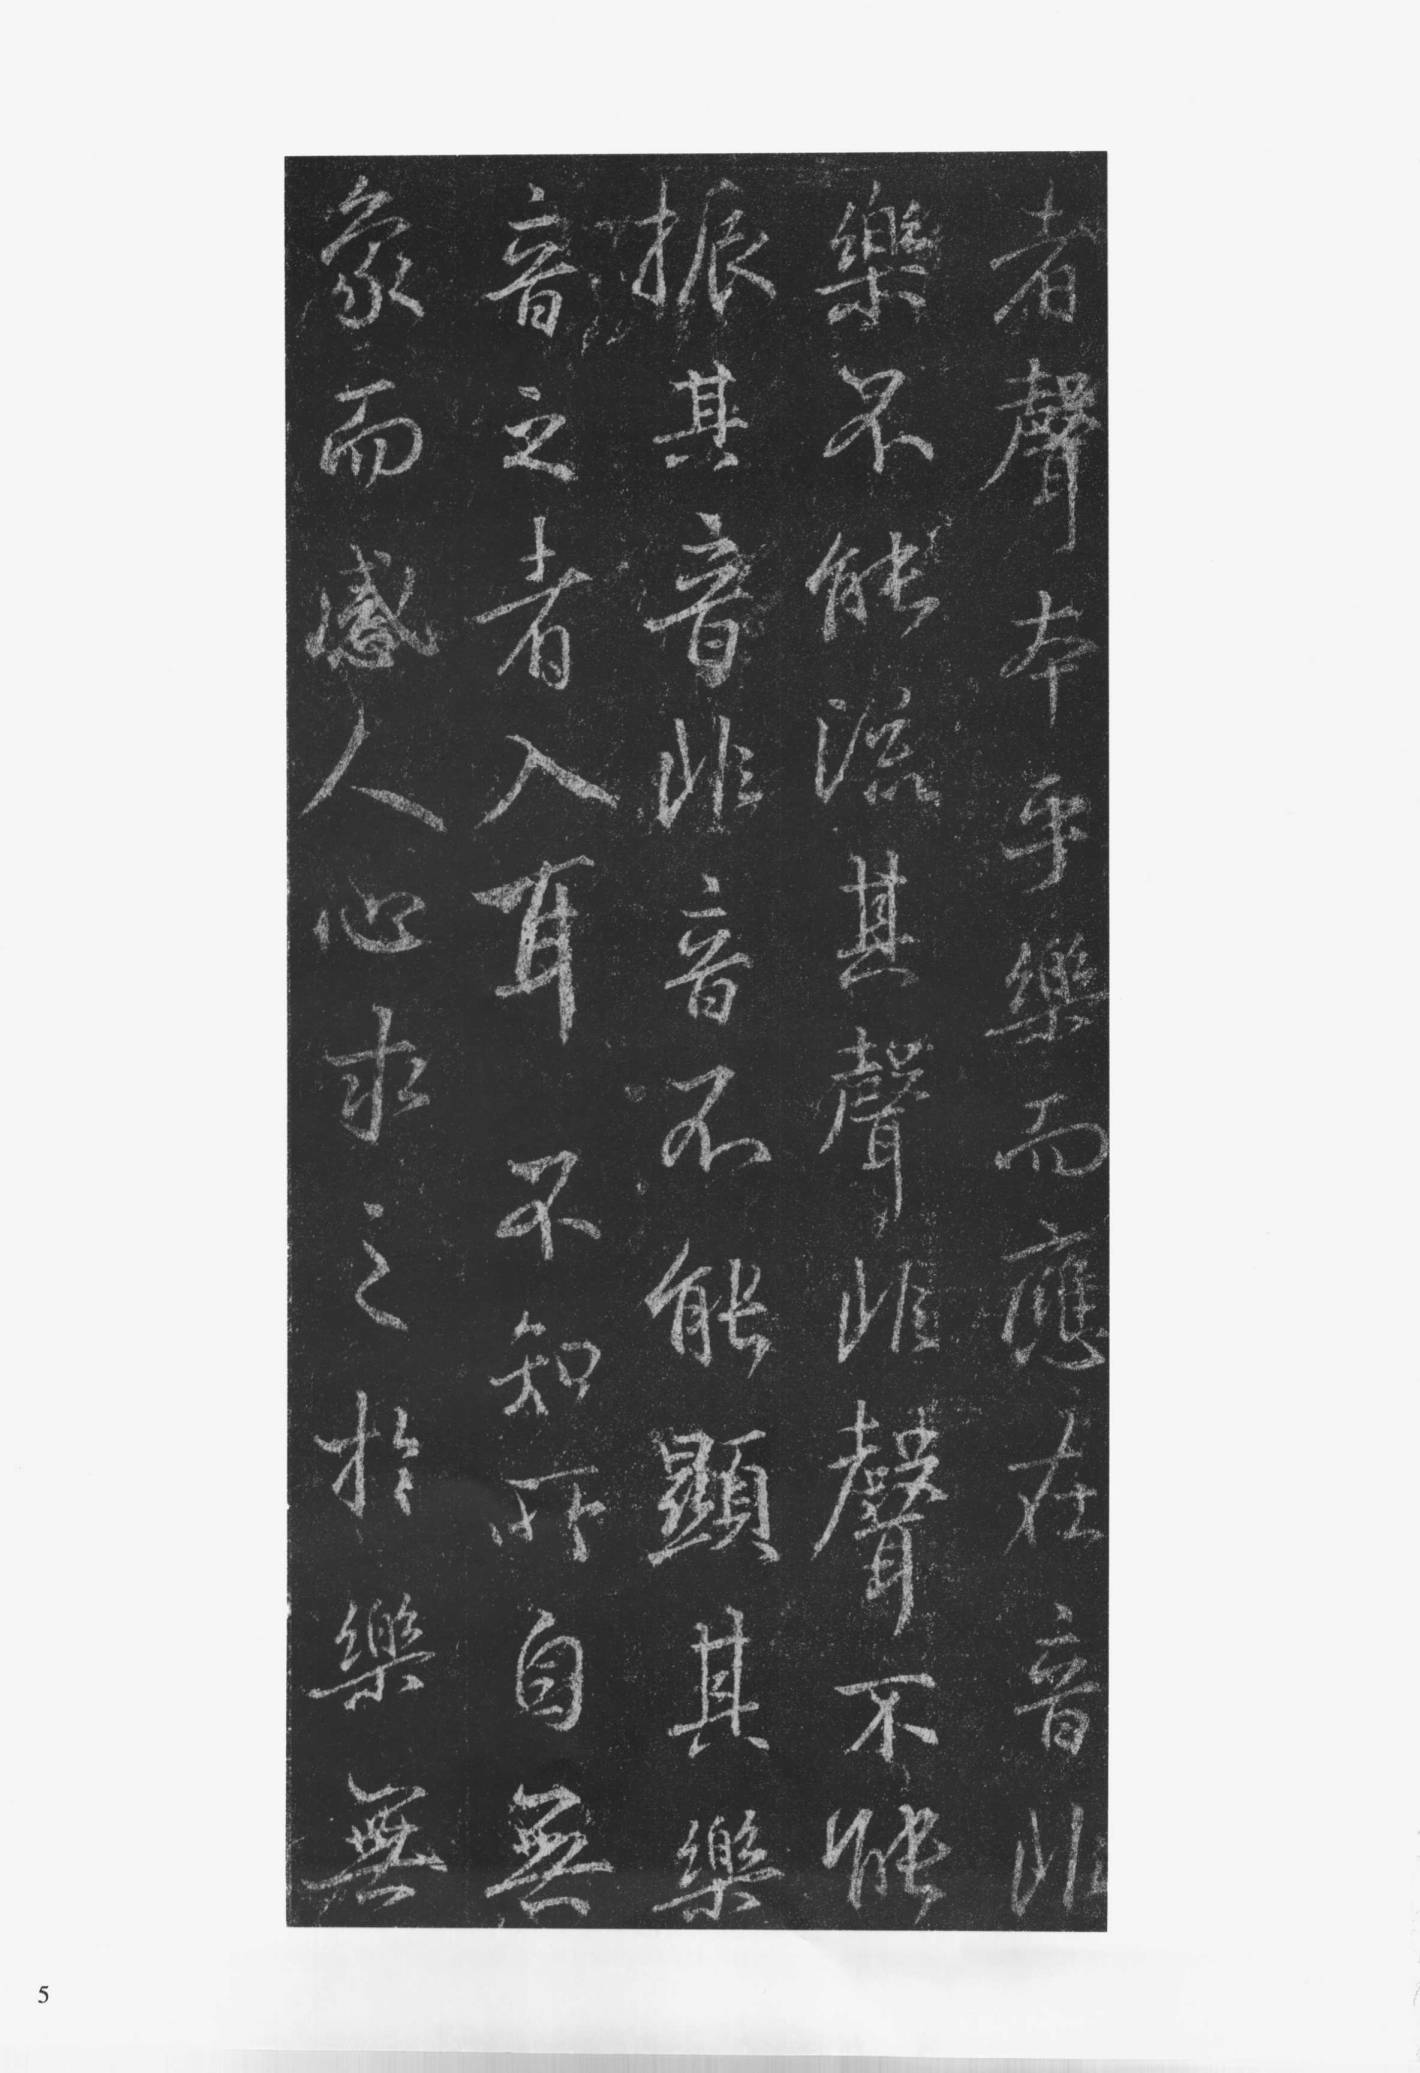 者聲本乎樂而應在音非
樂不能流其聲非聲不能
振其音非音不能顯其樂
音之者入耳不知所自無
象而感人心求之於樂無
5